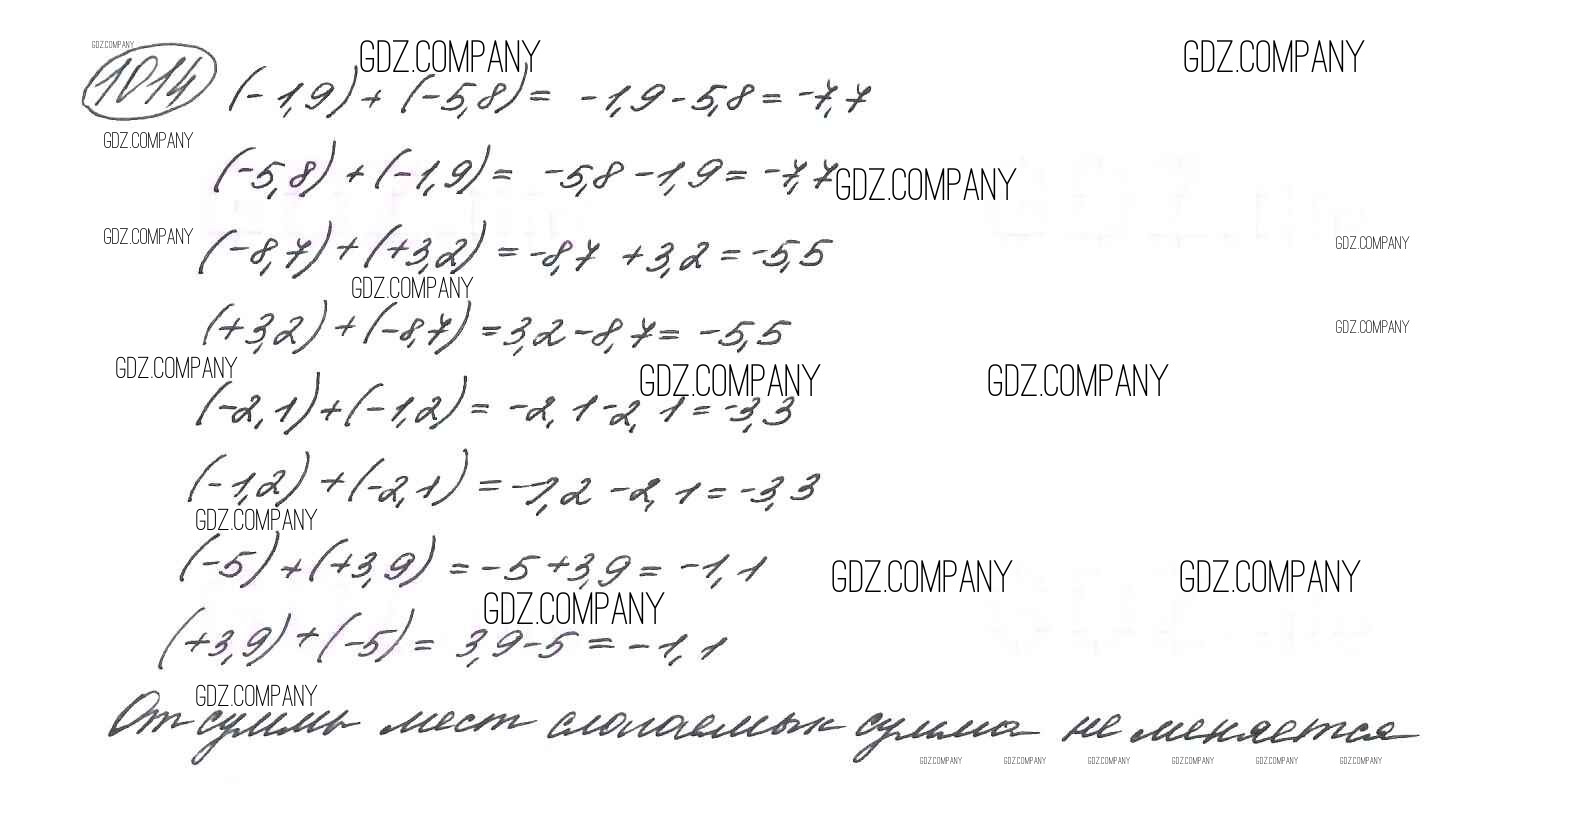 GDZ.COMPANY
GDZ.COMPANY GDZ.COMPANY
1014 (-1,9) + (-5,8) = -1,9 - 5,8 = -7,7
GDZ.COMPANY
(-5,8) + (-1,9) = -5,8 - 1,9 = -7,7 GDZ.COMPANY
GDZ.COMPANY (-8,7) + (+3,2) = -8,7 + 3,2 = -5,5 GDZ.COMPANY
GDZ.COMPANY
(+3,2) + (-8,7) = 3,2 - 8,7 = -5,5 GDZ.COMPANY
GDZ.COMPANY GDZ.COMPANY GDZ.COMPANY
(-2,1) + (-1,2) = -2,1 - 2,1 = -3,3
(-1,2) + (-2,1) = -1,2 - 2,1 = -3,3
GDZ.COMPANY
(-5) + (+3,9) = -5 + 3,9 = -1,1 GDZ.COMPANY GDZ.COMPANY
GDZ.COMPANY
(+3,9) + (-5) = 3,9 - 5 = -1,1
GDZ.COMPANY
От суммы мест слогаемых сумма не меняется
GDZ.COMPANY GDZ.COMPANY GDZ.COMPANY GDZ.COMPANY GDZ.COMPANY GDZ.COMPANY